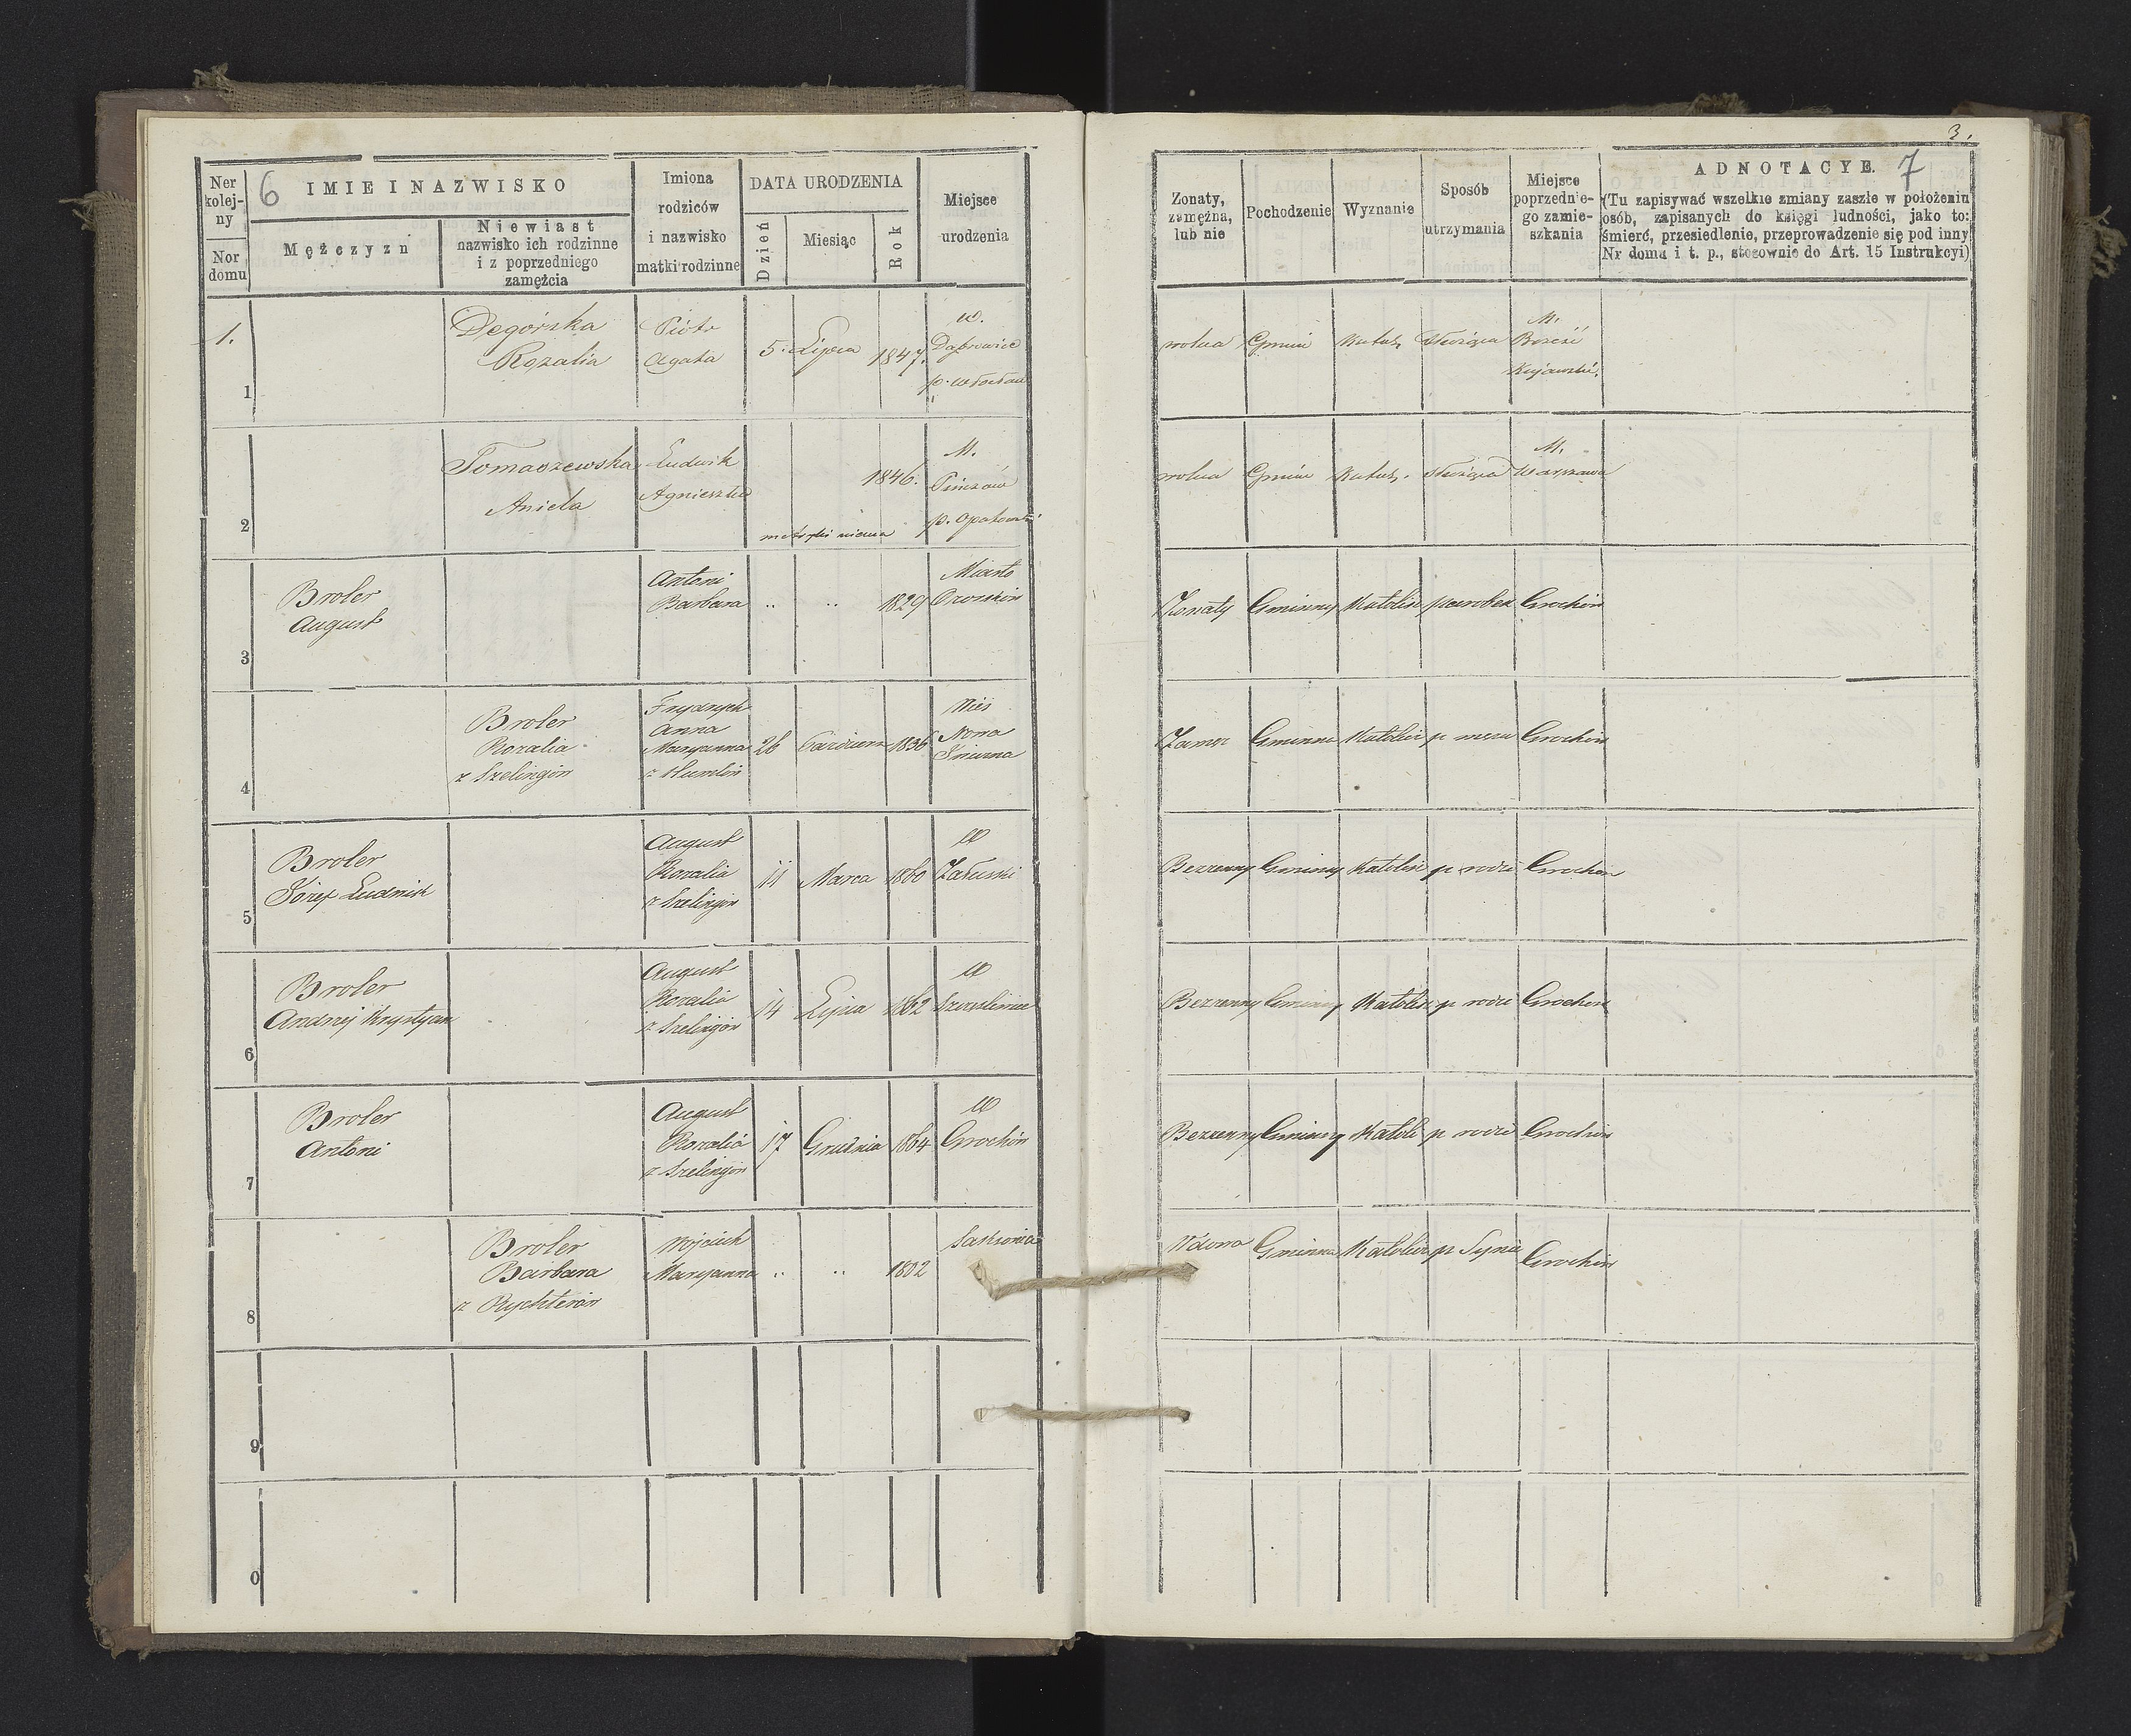 6
Ner kolej- ny
Nor domu
IMIE I NAZWISKO
Mężczyzn
Niewiast
nazwisko ich rodzinne
i z poprzedniego
zamęźcia
Imiona
rodziców
i nazwisko
matki rodzinne
DATA URODZENIA
Dzień
Miesiąc
Rok
Miejsce
urodzenia
1.
1
Degórska
Rozalia
Piotr
Agata
5. Lipca 1847.
w.
Dąbrowice
2
Tomaszewska
Aniela
Ludwik
Agnieszka
1846.
metryki niema
M.
3
Broler
August
Antoni
Barbara
" " 1829
Miasto
4
Broler
Rozalia
z Szelingów
Frydrych
Anna
Maryanna
26 1836
Nowa
5
Broler
Józef Ludwik
August
Rozalia
z Szelingów
11 Marca 1860
W
Załuski
6
Broler
Andrzej Krystyan
August
Rozalia
z Szelingów
14 Lipca 1862
W
7
Broler
Antoni
August
Rozalia
z Szelingów
17 Grudnia 1864
W
Grochów
8
Broler
Barbara
z Rychterów
Wojciech
Maryanna
" " 1802
Saksonia
9
0
3.
7
Zonaty,
zamężna,
lub nie
Pochodzenie
Wyznanie
Sposób
utrzymania
Miejsce
poprzednie-
go zamie-
szkania
ADNOTACYE.
(Tu zapisywać wszelkie zmiany zaszłe w położeniu
osób, zapisanych do księgi ludności, jako to:
śmierć, przesiedlenie, przeprowadzenie się pod inny
Nr domu i t. p., stosownie do Art. 15 Instrukcyi)
wolna Gmin Katol.
M.
Brześć
Kujawski.
wolna Gmin Katol.
M.
Warszawa
Żonaty Gminny Katolik parobek Grochów
Gminna Katolic Grochów
Bezzenny Gminny Katolik p rodzi Grochów
Bezzenny Gminny Katolik p rodzi Grochów
Bezzenny Gminny Katoli p rodzi Grochów
Wdowa Gminna Katolic p Synie Grochów